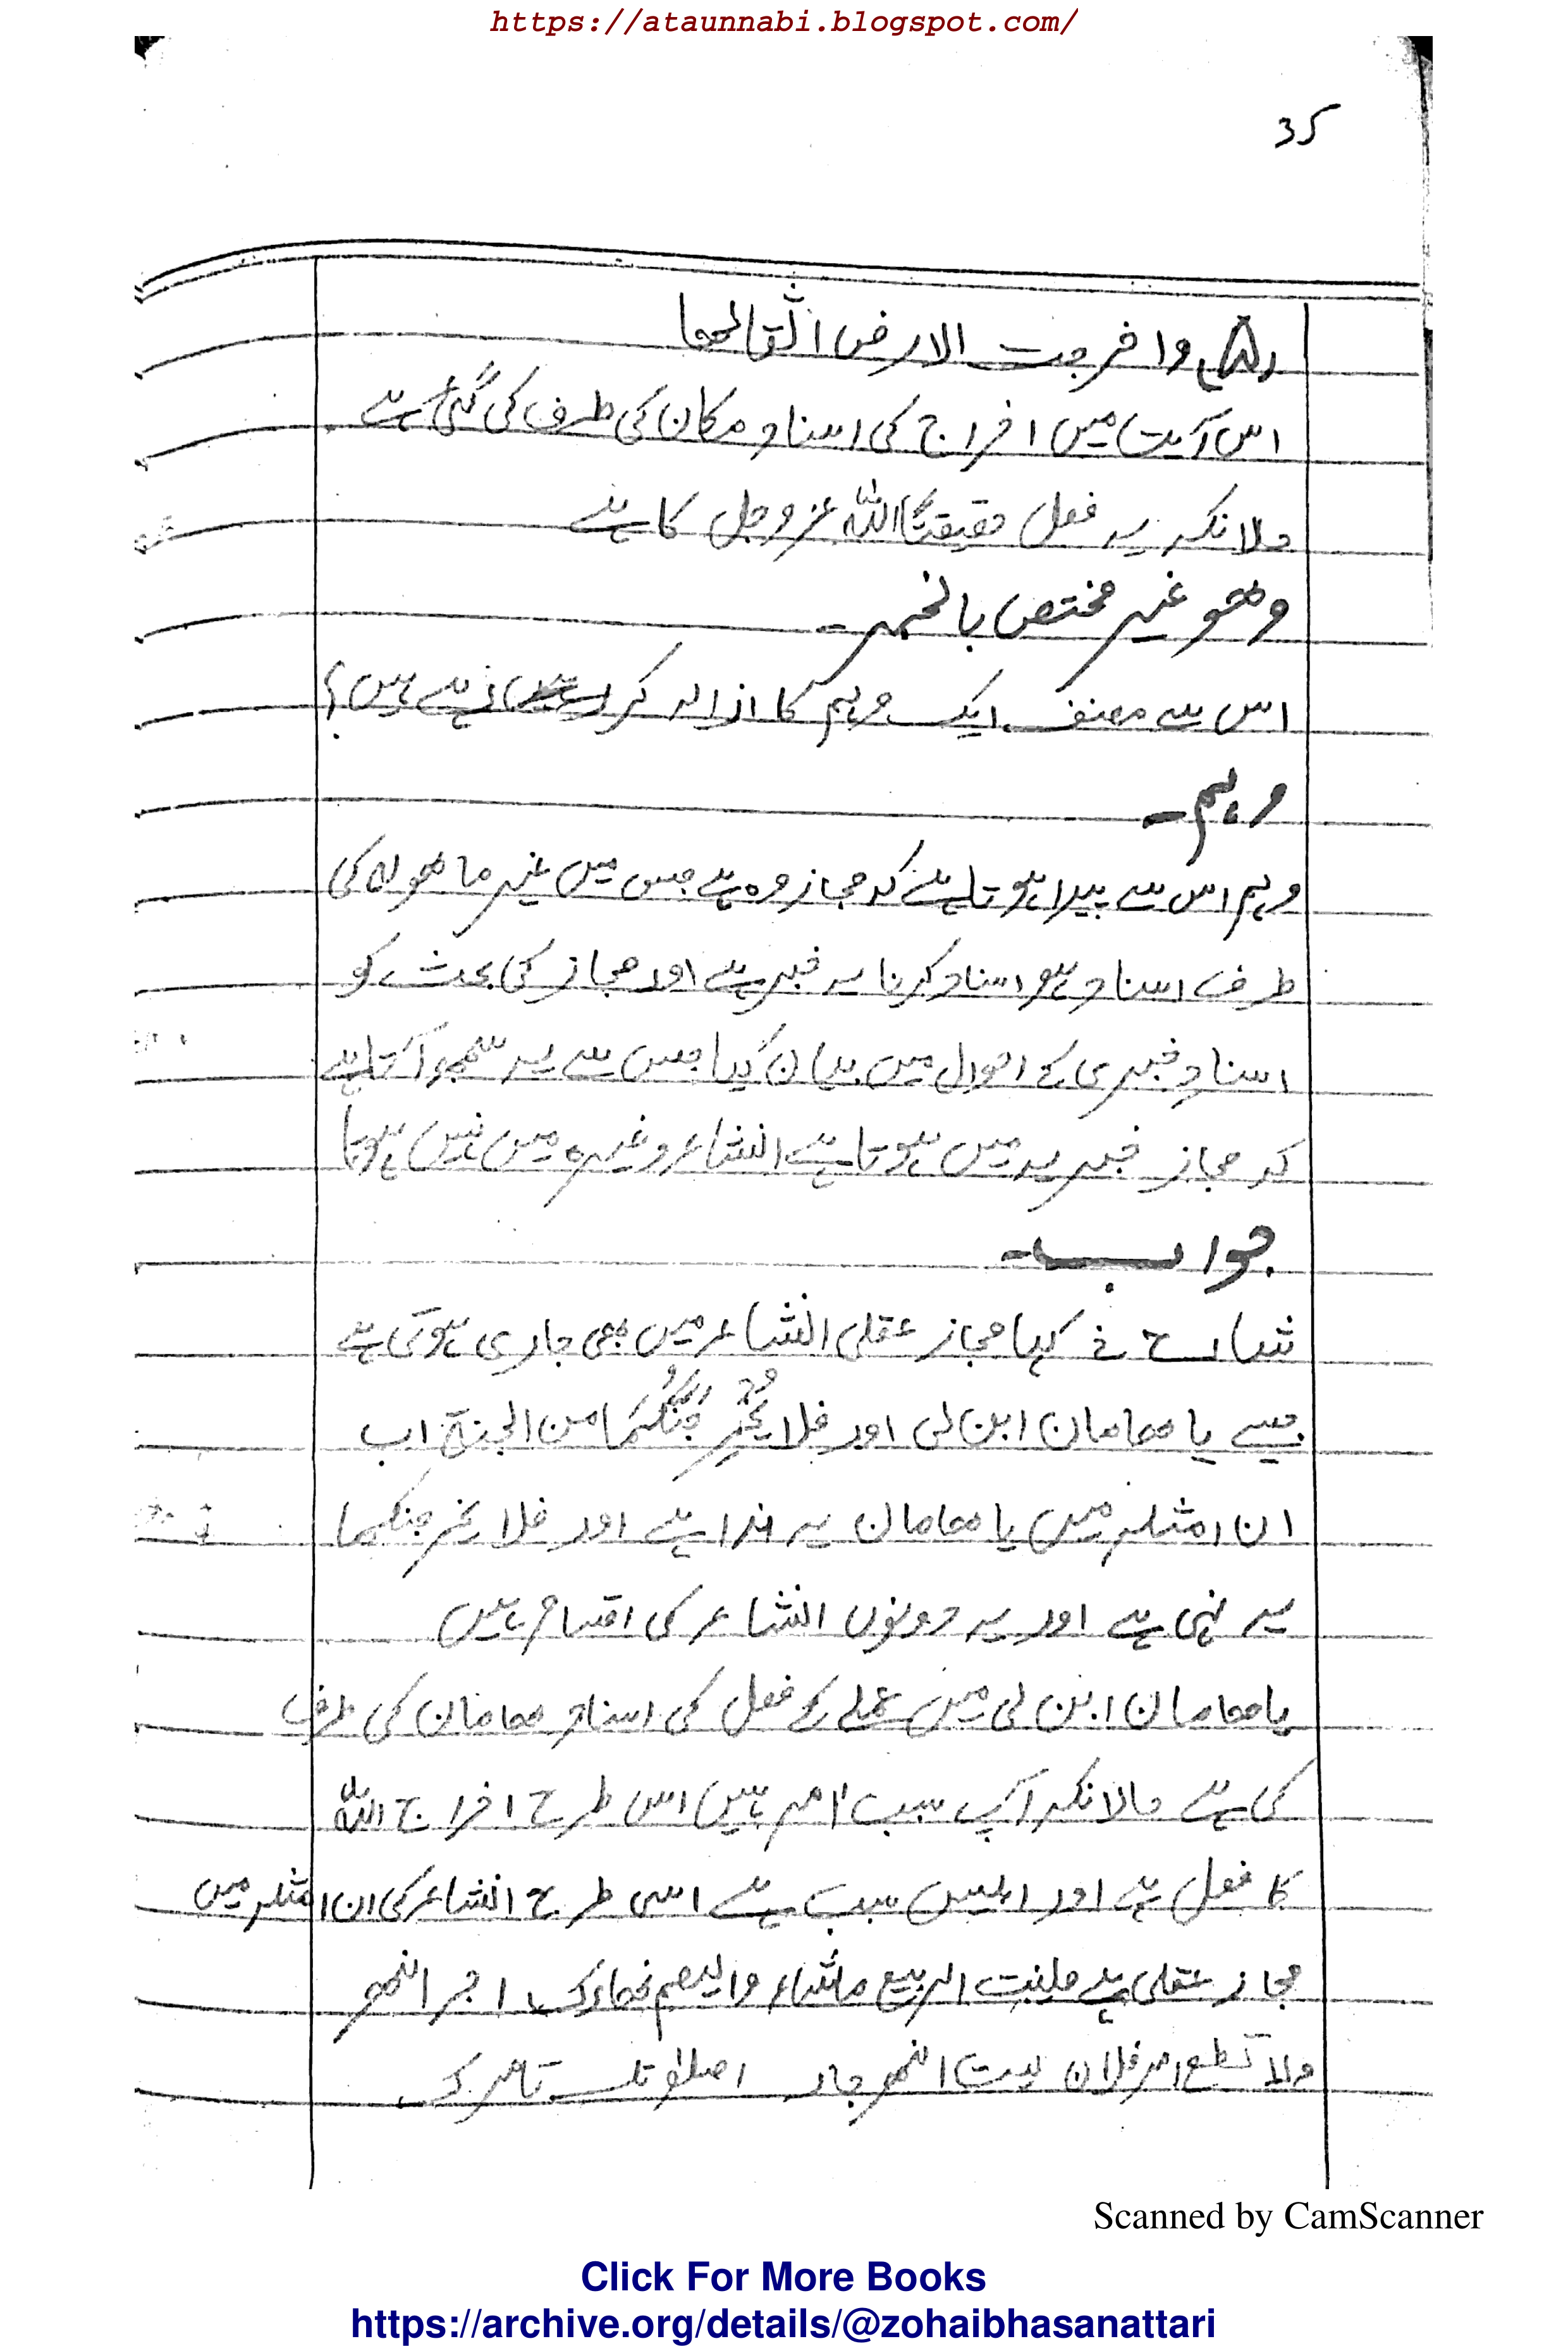 https://ataunnabi.blogspot.com/
35
(۵) واخرجت الارض اثقالھا
اس آیت میں اخراج کی اسناد مکان کی طرف کی گئی ہے
حالانکہ یہ فعل حقیقتاً اللہ عزوجل کا ہے
وھو غیر مختص بالخبر۔
اس سے مصنف ایک وہم کا ازالہ کر رہے ہیں؟
وہم۔
وہم اس سے پیدا ہوتا ہے کہ مجاز وہ ہے جس میں غیر ما ھو لہ کی
طرف اسناد ہو اسناد کرنا یہ خبر ہے اور مجاز کی بحث کو
اسناد خبری کے احوال میں بیان کیا جس سے یہ سمجھ آتا ہے
کہ مجاز خبر یہ میں ہوتا ہے انشاء وغیرہ میں نہیں ہوتا
جواب۔
شارح نے کہا مجاز عقلی انشاء میں بھی جاری ہوتی ہے
جیسے یا ھامان ابن لی اور فلا یُخْرِجَنَّکُمَا من الجنۃ اب
ان امثلہ میں یا ھامان یہ ندا ہے اور فلا یخرجنکما
یہ نہی ہے اور یہ دونوں انشاء کی اقسام ہیں
یا ھامان ابن لی میں عملے کے فعل کی اسناد ھامان کی طرف
کی ہے حالانکہ آپ سبب امر ہیں اس طرح اخراج اللہ
کا فعل ہے اور ابلیس سبب ہے اسی طرح انشاء کی ان امثلہ میں
مجاز عقلی ہے فلینبت الربیع ماشاء ولیصم نھارک اجر النھر
ولا تطع امر فلان لیت النھر جار اصلوتک تامرک
Scanned by CamScanner
Click For More Books
https://archive.org/details/@zohaibhasanattari